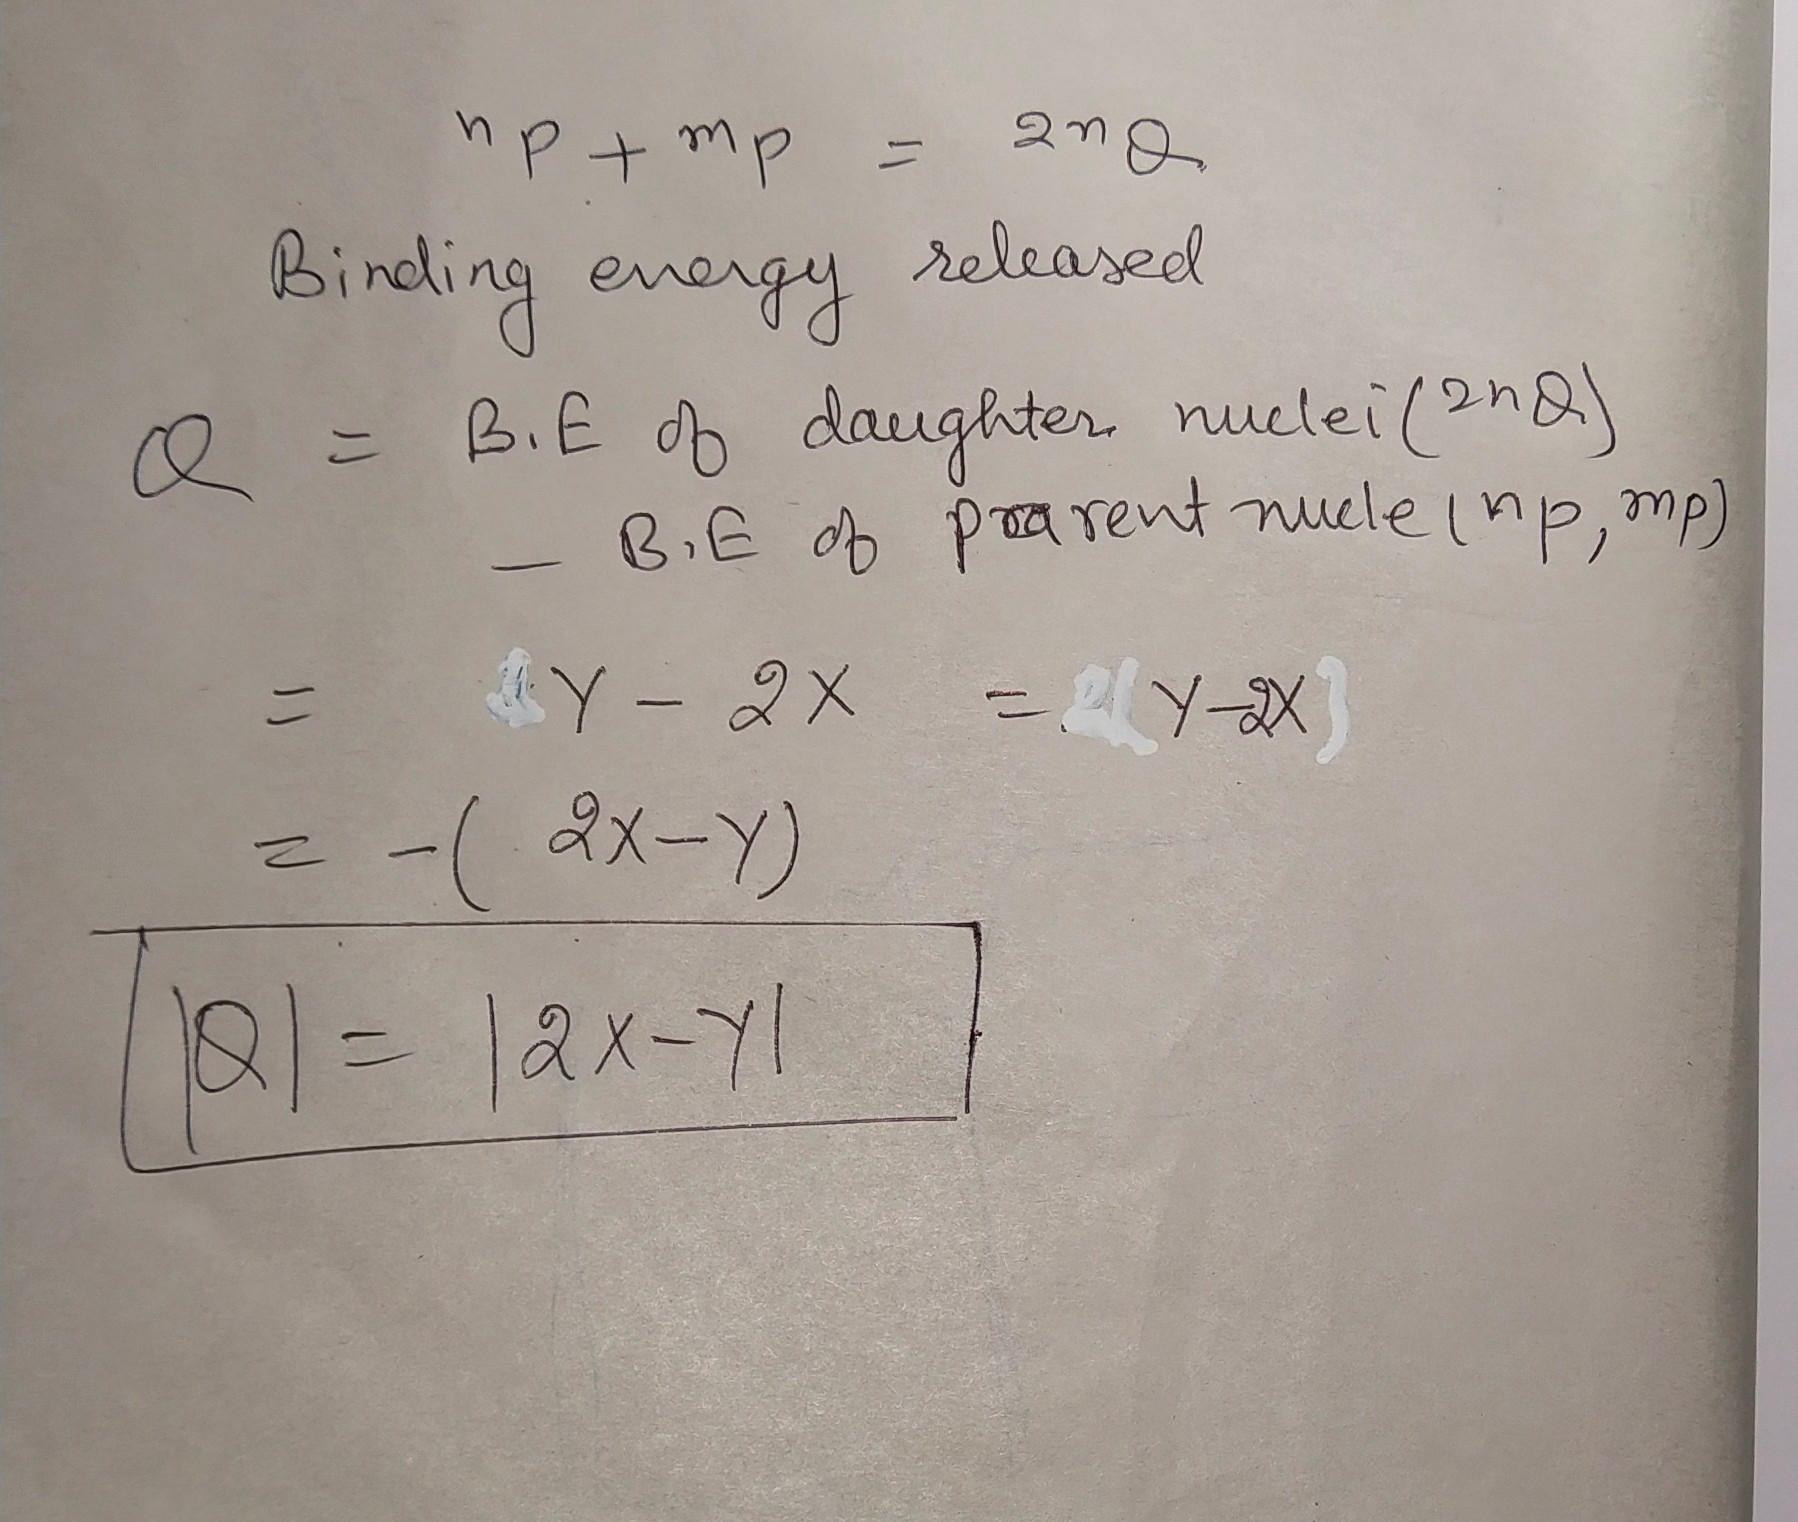 ⁿp + ᵐp = ²ⁿQ
Binding energy released
Q = B.E of daughter nuclei (²ⁿQ)
- B.E of parent nucle (ⁿp, ᵐp)
= Y - 2X = Y-2X
= -( 2X-Y)
|Q| = |2X-Y|